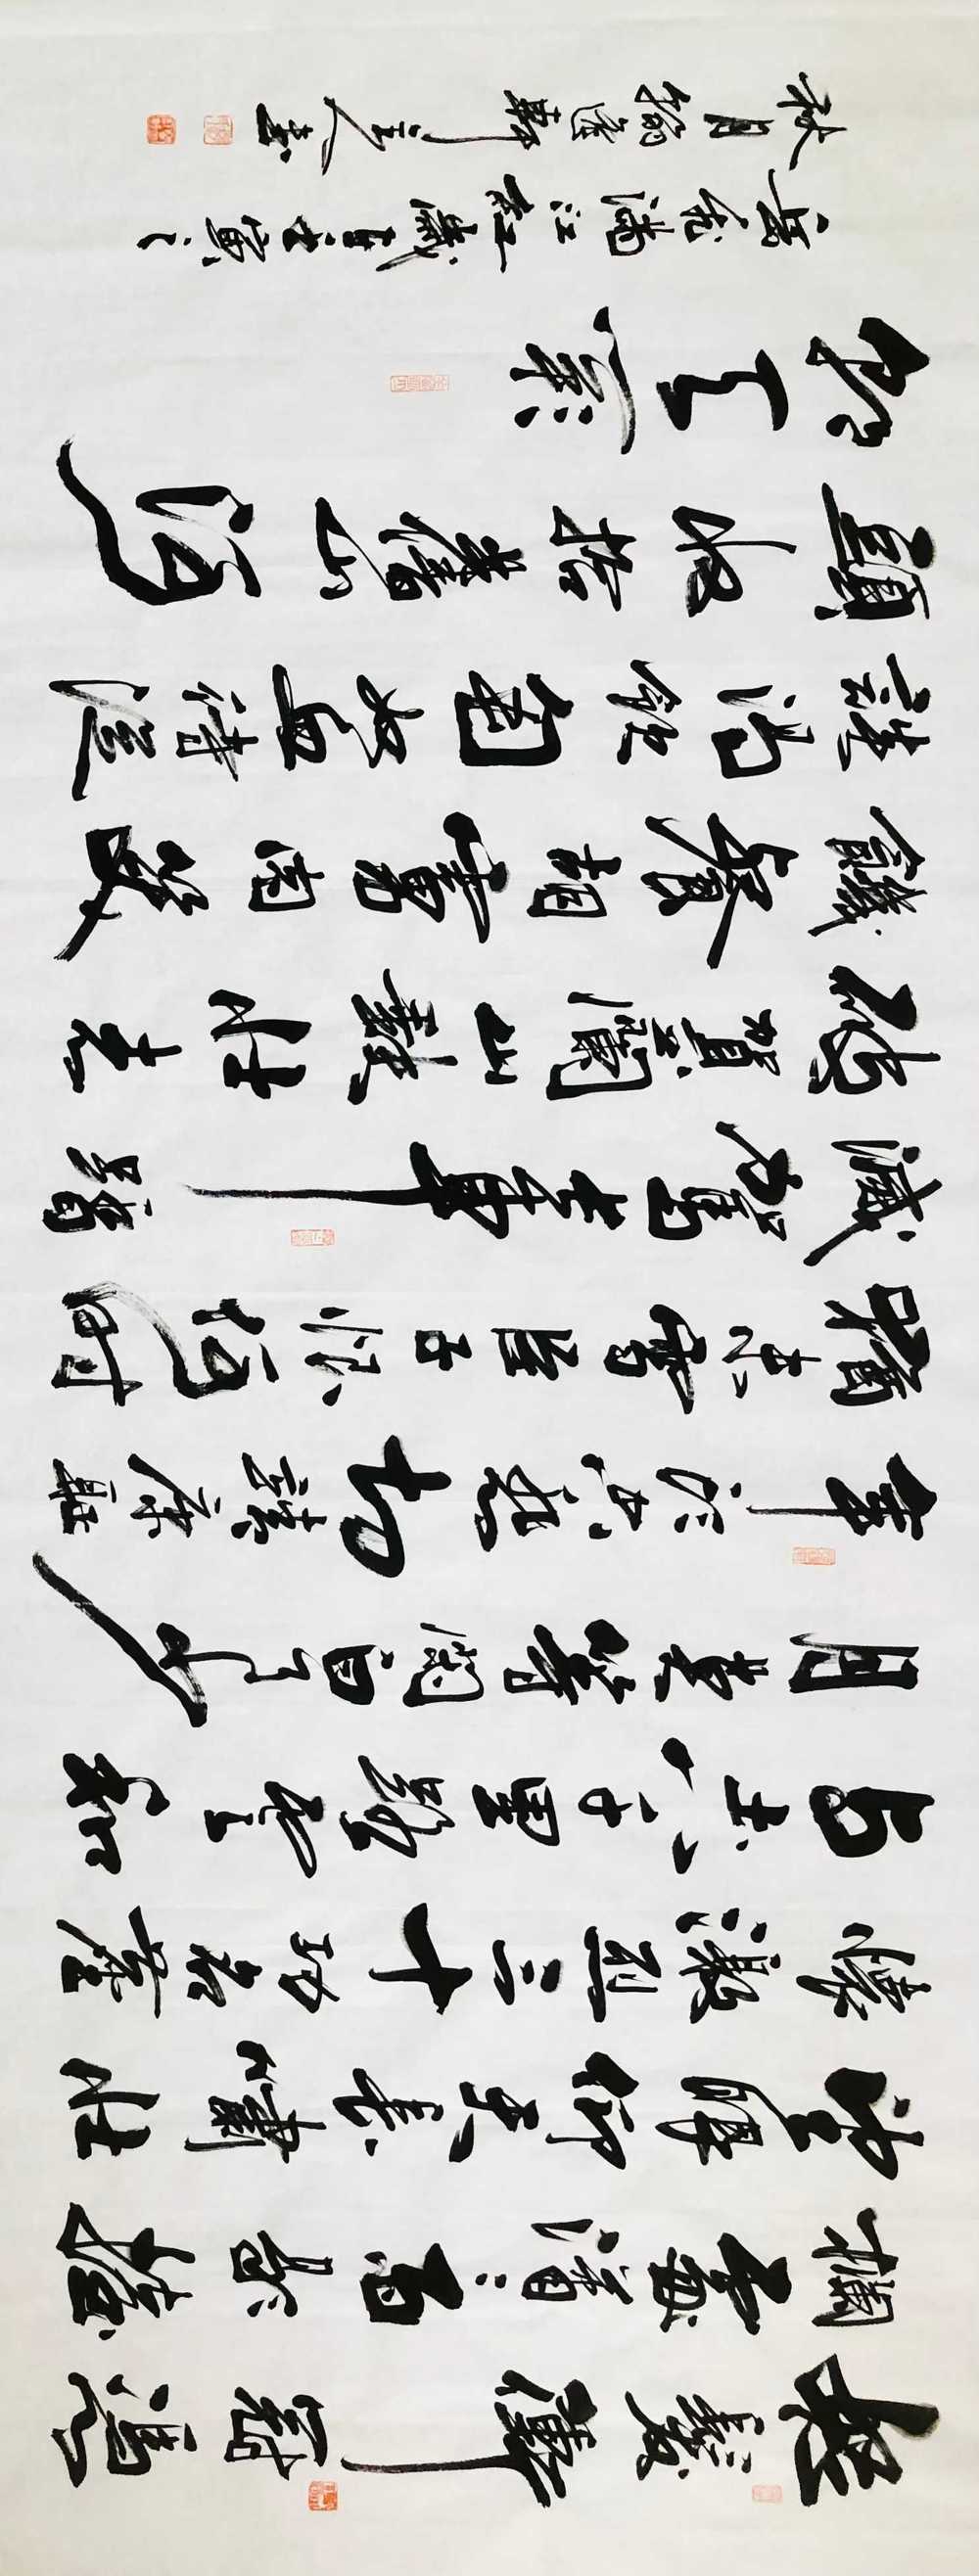 怒髮衝冠憑
欄處瀟瀟雨歇抬
望眼仰天長嘯壯
懷激烈三十功名塵
与土八千里路雲和
月莫等閑白了少
年頭空悲切靖康恥
猶未雪臣子恨何時
滅駕長車踏
破賀蘭山缺壯志
饑餐胡虜肉笑
談渴飲匈奴血待從
頭收拾舊山河
朝天闕
岳飛滿江紅歲在壬寅之
秋月軒主人書